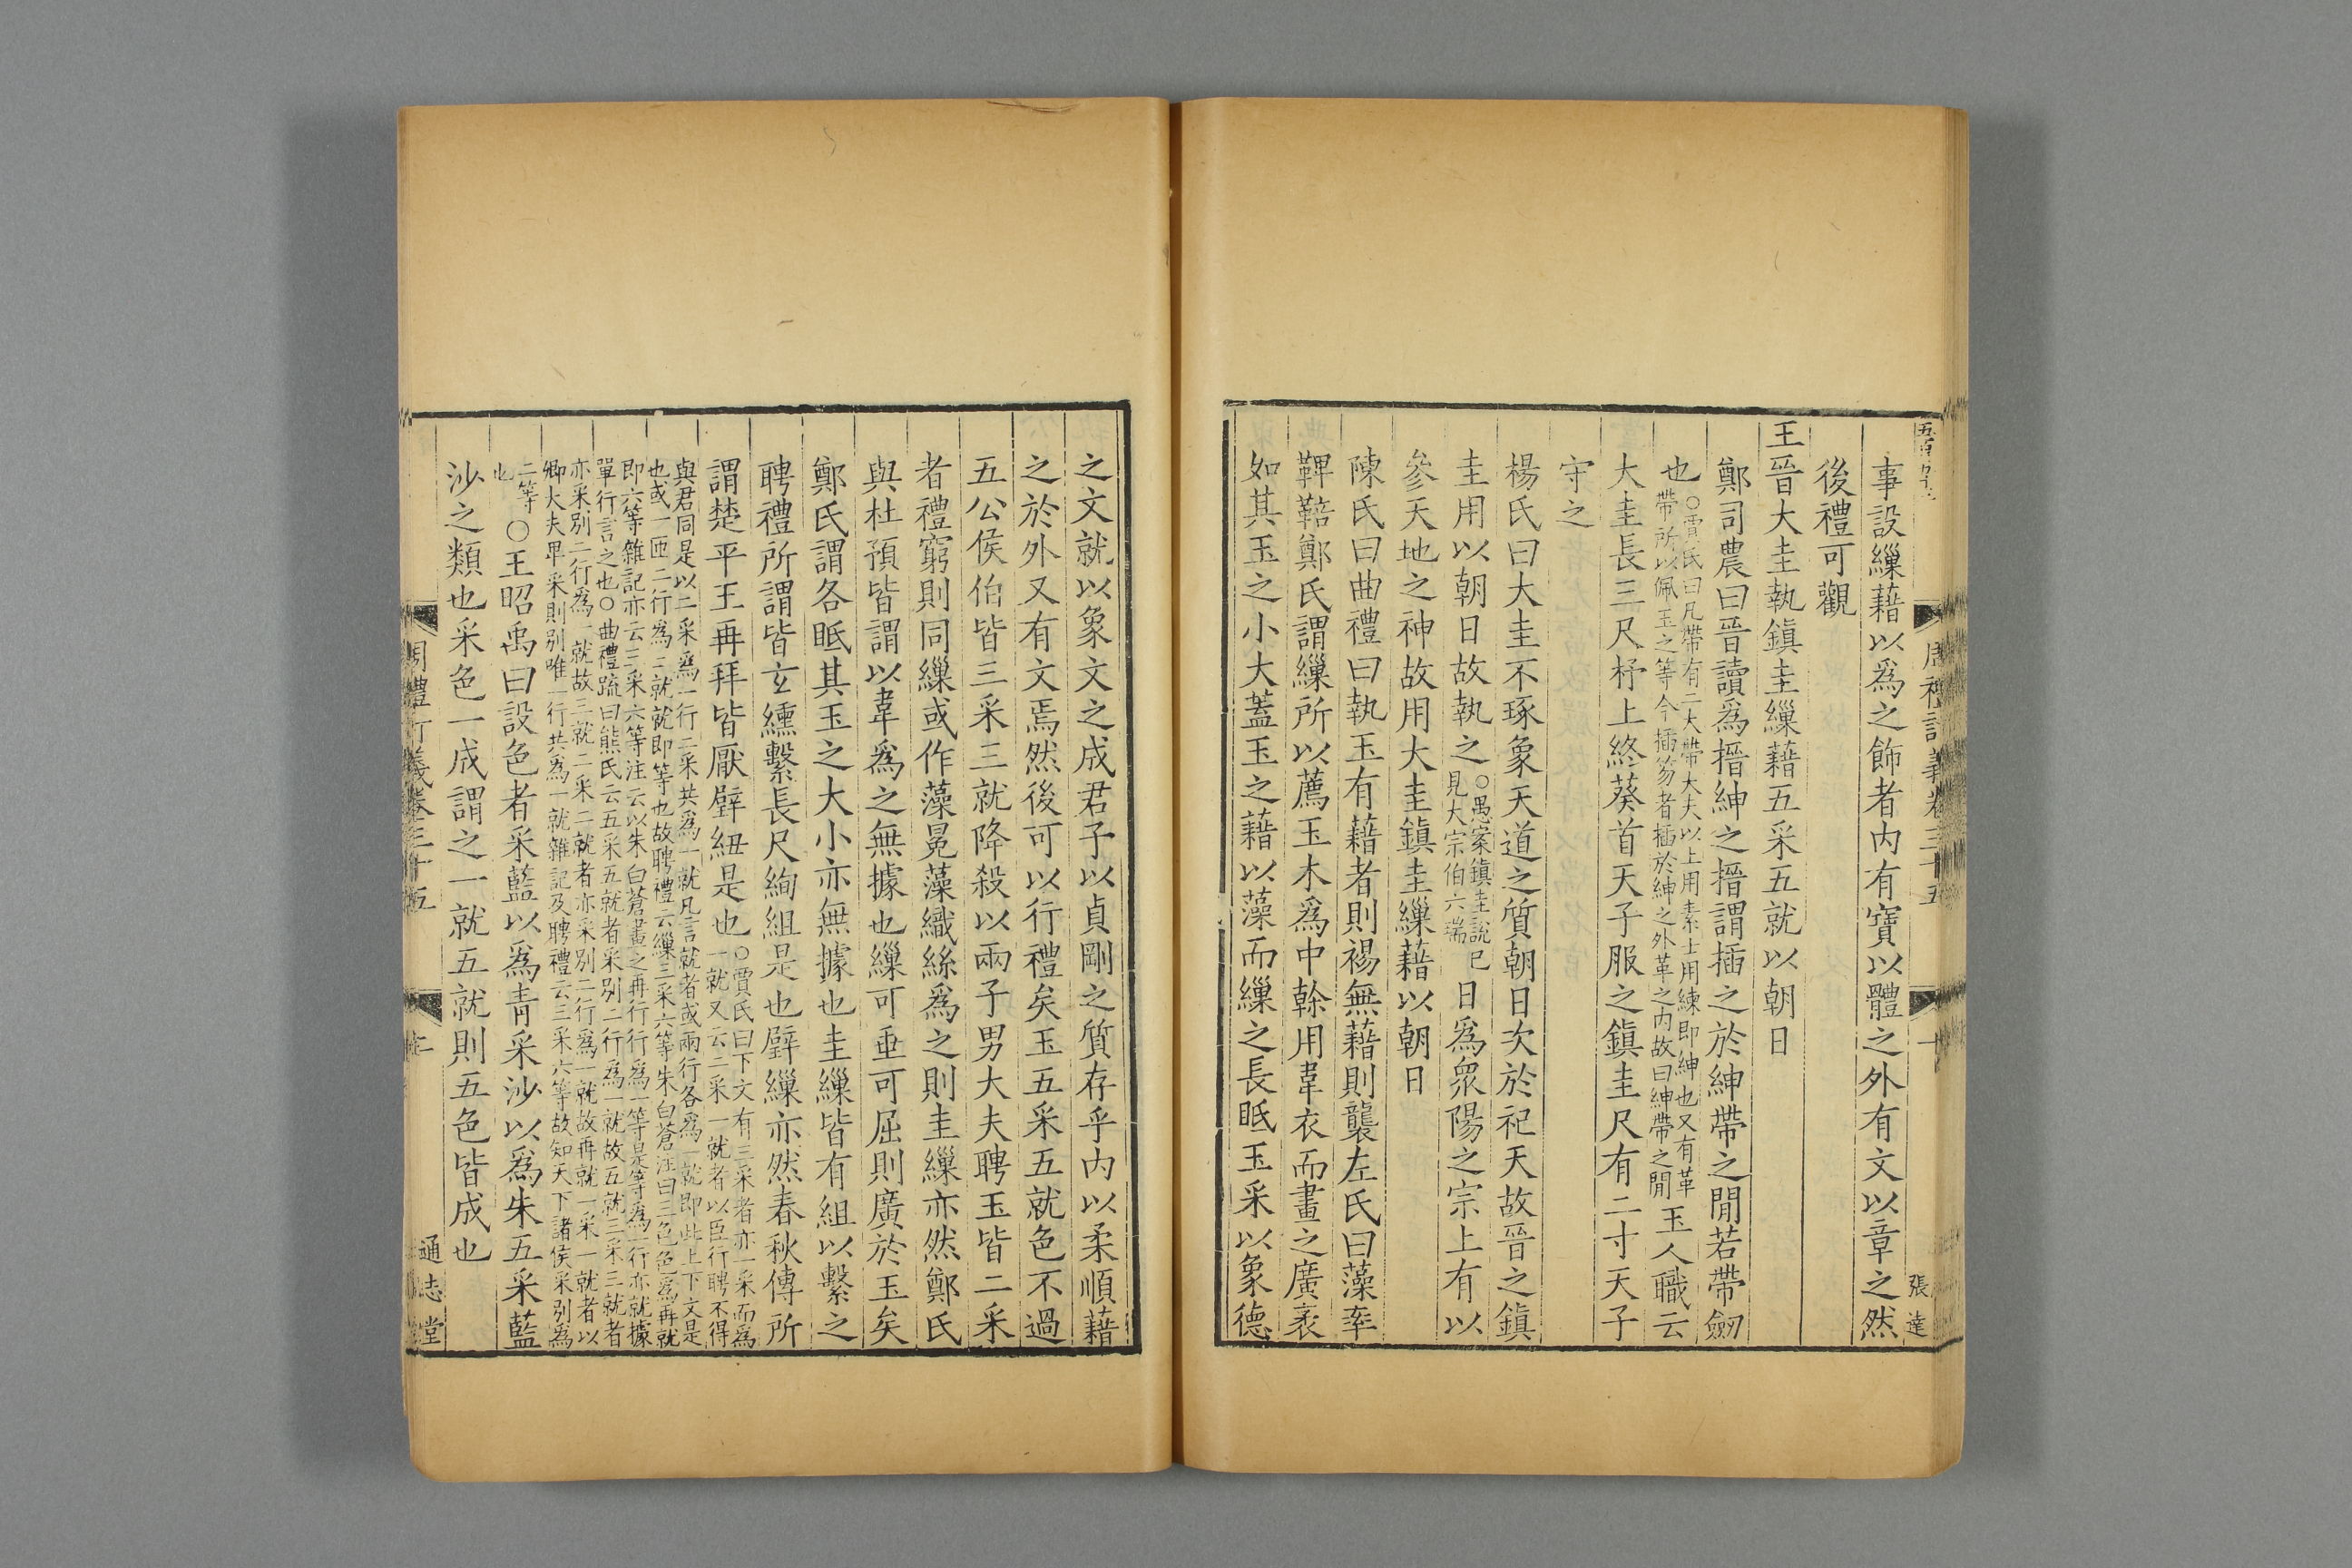 事設繅藉以爲之飾者内有寶以體之外有文以章之然
後禮可觀
王晉大圭執鎮圭繅藉五采五就以朝日
鄭司農曰晉讀爲搢紳之搢謂插之於紳帶之閒若帶劒
也
○賈氏曰凡帶有二大帶大夫以上用素士用練即紳也又有革
帶所以佩玉之等今插笏者插於紳之外革之内故曰紳帶之閒
玉人職云
大圭長三尺杼上終葵首天子服之鎮圭尺有二寸天子
守之
楊氏曰大圭不琢象天道之質朝日次於祀天故晉之鎮
圭用以朝日故執之
○愚案鎮圭說已
見大宗伯六瑞
日爲衆陽之宗上有以
參天地之神故用大圭鎮圭繅藉以朝日
陳氏曰曲禮曰執玉有藉者則裼無藉則襲左氏曰藻率
鞞鞛鄭氏謂繅所以薦玉木爲中榦用韋衣而畫之廣袤
如其玉之小大蓋玉之藉以藻而繅之長眂玉采以象德
張達
之文就以象文之成君子以貞剛之質存乎内以柔順藉
之於外又有文焉然後可以行禮矣玉五采五就色不過
五公侯伯皆三采三就降殺以兩子男大夫聘玉皆二采
者禮窮則同繅或作藻冕藻織絲爲之則圭繅亦然鄭氏
與杜預皆謂以韋爲之無據也繅可垂可屈則廣於玉矣
鄭氏謂各眂其玉之大小亦無據也圭繅皆有組以繫之
聘禮所謂皆玄纁繫長尺絢組是也璧繅亦然春秋傳所
謂楚平王再拜皆厭璧紐是也
○賈氏曰下文有三采者亦一采而爲
一就又云二采一就者以臣行聘不得
與君同是以二采爲一行二采共爲一就凡言就者或兩行各爲一就即此上下文是
也或一匝二行爲二就就即等也故聘禮云繅三采六等朱白蒼注曰三色色爲再就
即六等雜記亦云三采六等注云以朱白蒼畫之再行行爲一等是等爲一行亦就據
單行言之也○曲禮疏曰熊氏云五采五就者采別二行爲一就故五就三采三就者
亦采別二行爲一就故三就二采二就者亦采別二行爲一就故再就一采一就者以
卿大夫卑采則別唯一行共爲一就雜記及聘禮云三采六等故知天下諸侯采別爲
二等
也
○王昭禹曰設色者采藍以爲青采沙以爲朱五采藍
沙之類也采色一成謂之一就五就則五色皆成也
周禮訂義卷三十五
通志堂